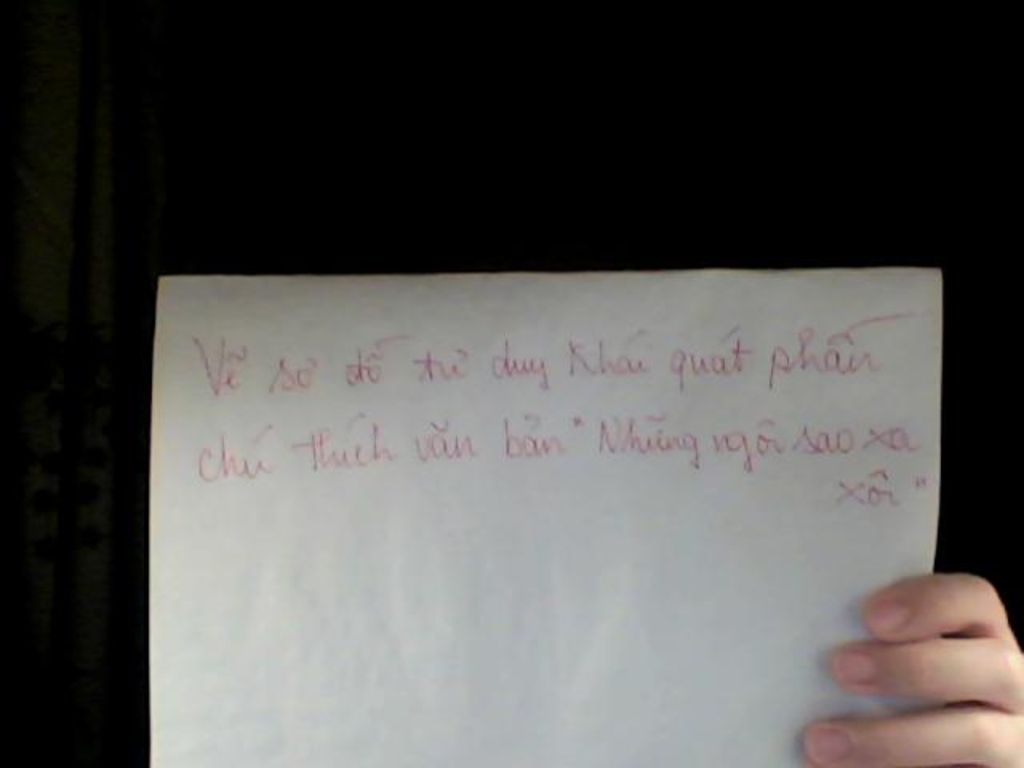 Vẽ sơ đồ tư duy Khái quát phần
chú thích văn bản "Những ngôi sao xa
xôi"